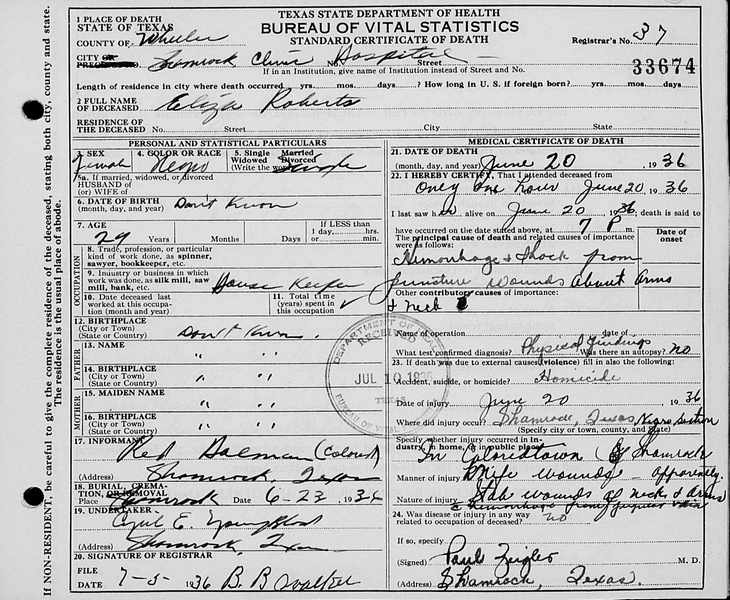 TEXAS STATE DEPARTMENT OF HEALTH
BUREAU OF VITAL STATISTICS
STANDARD CERTIFICATE OF DEATH
1 PLACE OF DEATH
STATE OF TEXAS
COUNTY OF Wheeler
Registrar's No. 37
33674
CITY OR Shamrock Clinic Hospital
No. Street
If in an Institution, give name of Institution instead of Street and No.
Length of residence in city where death occurred yrs. mos. days? How long in U. S. if foreign born? yrs. mos. days
2 FULL NAME
OF DECEASED Eliza Roberts
RESIDENCE OF
THE DECEASED No. Street City State
PERSONAL AND STATISTICAL PARTICULARS
3. SEX 4. COLOR OR RACE 5. Single Married
Widowed Divorced
(Write the word)
Female Negro Single
5a. If married, widowed, or divorced
HUSBAND of
(or) WIFE of
6. DATE OF BIRTH
(month, day, and year) Don't Know
7. AGE If LESS than
29 Years Months Days 1 day, hours min.
OCCUPATION
8. Trade, profession, or particular
kind of work done, as spinner,
sawyer, bookkeeper, etc.
9. Industry or business in which
work was done, as silk mill, saw
mill, bank, etc. House Keeper
10. Date deceased last
worked at this occupa-
tion (month and year)
11. Total time
(years) spent in
this occupation
12. BIRTHPLACE
(City or Town)
(State or Country) Don't Know
FATHER
13. NAME " "
14. BIRTHPLACE
(City or Town)
(State or Country) " "
MOTHER
15. MAIDEN NAME " "
16. BIRTHPLACE
(City or Town)
(State or Country) " "
17 INFORMANT Red (Colored)
(Address) Shamrock, Texas
18. BURIAL, CREMA-
TION, OR REMOVAL
Place Shamrock Date 6-23, 1936
19. UNDERTAKER
Cyril E. Youngblood
(Address) Shamrock, Texas
20. SIGNATURE OF REGISTRAR
FILE
DATE 7-5-1936 B. B. Walker
MEDICAL CERTIFICATE OF DEATH
21. DATE OF DEATH
(month, day, and year) June 20 1936
22. I HEREBY CERTIFY, That I attended deceased from
Only one hour June 20, 1936
I last saw her alive on June 20 1936, death is said to
have occurred on the date stated above, at 7 P m.
The principal cause of death and related causes of importance
were as follows:
Date of
onset
Hemorrhage & Shock from
puncture wounds About Arms
Other contributory causes of importance:
& neck
Name of operation date of
What test confirmed diagnosis? Physical Findings Was there an autopsy? no
23. If death was due to external causes (violence) fill in also the following:
Accident, suicide, or homicide? Homicide
Date of injury June 20 1936
Where did injury occur? Shamrock, Texas Negro Section
(Specify city or town, county, and State)
Specify whether injury occurred in in-
dustry, in home, or in public place.
In Coloredtown of Shamrock
Manner of injury Knife wounds - apparently.
Nature of injury Stab wounds of neck & arms
& hemorrhage from jugular vein
24. Was disease or injury in any way
related to occupation of deceased? no
If so, specify
(Signed) Paul Zeigler M. D.
(Address) Shamrock, Texas.
DEPARTMENT OF HEALTH
RECEIVED
JUL 10 1936
TEXAS
BUREAU OF VITAL STATISTICS
IF NON-RESIDENT, be careful to give the complete residence of the deceased, stating both city, county and state.
The residence is the usual place of abode.